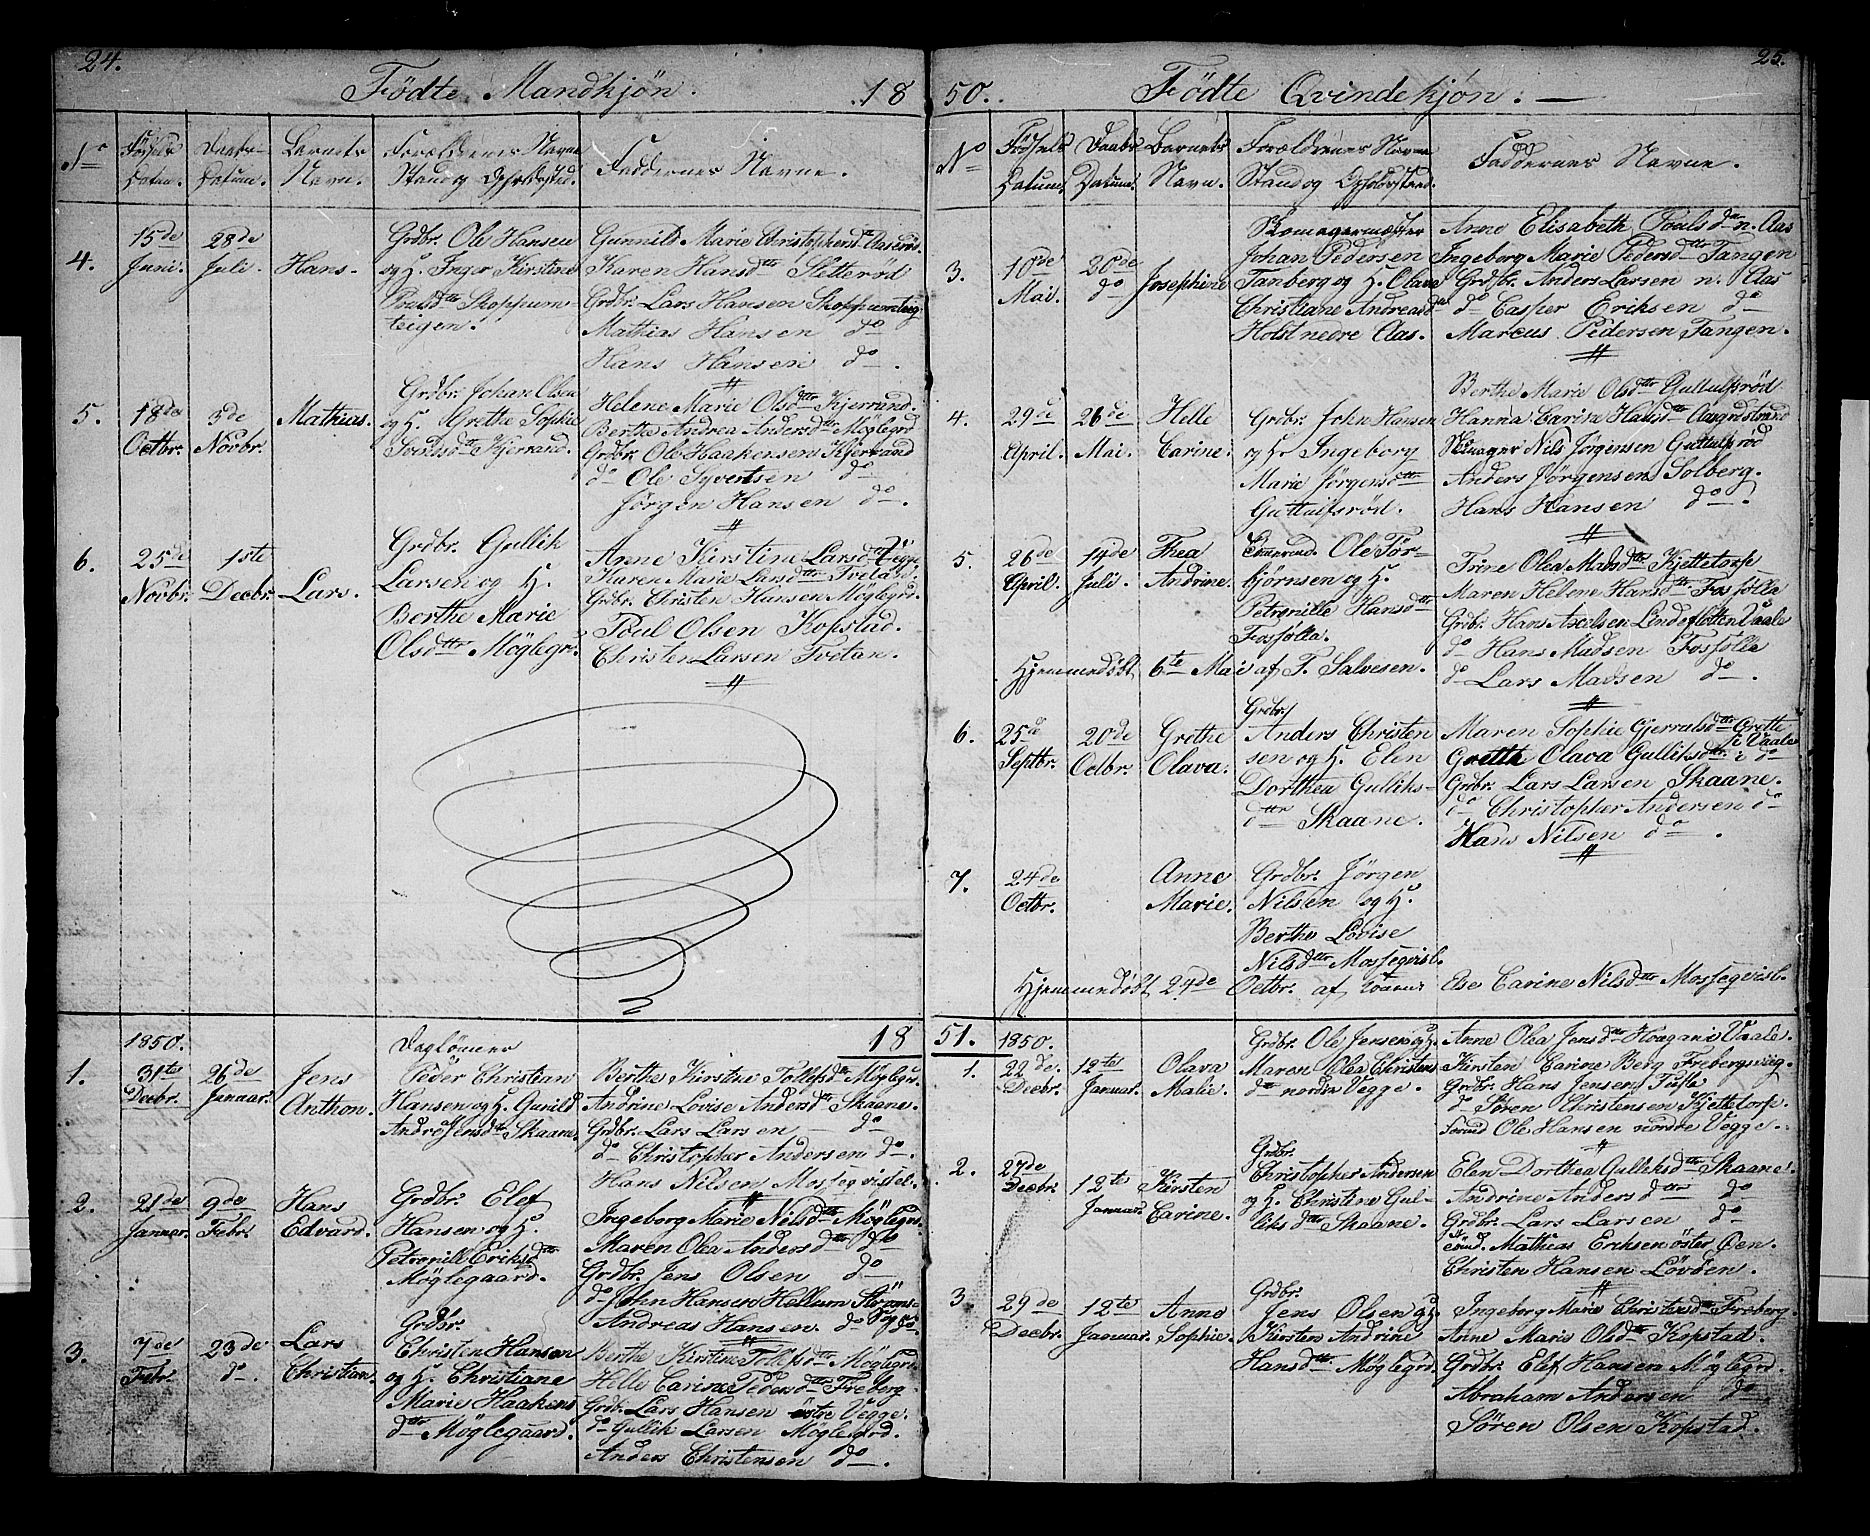 24.
Födte Mandkjön. 18
No Födsels Datum. Daabs- Datum. Barnets Navn. Forældrenes Navne Stand og Opholdssted. Faddernes Navne.
4. 15de Juni. 28de Juli. Hans.
Grdbr. Ole Hansen
og H. Inger Kirstine
Poulsdttr Skoppum-
teigen.
Gunnild Marie Christophersdttr
Karen Hansdttr Sletterød
Grdbr. Lars Hansen Skoppumteig
Mathias Hansen do
Hans Hansen do.
5. 18de Octbr. 3de Novbr. Mathias.
Grdbr. Johan Olsen
og H. Grethe Sophie
Kjerrand.
Helene Marie Olsdttr Kjerrand.
Berthe Andrea Andersdttr Möglegrd
Grdbr. Ole Haakensen Kjerrand
do Ole Syvertsen do
Jørgen Hansen do.
6. 25de Novbr. 1ste Decbr. Lars.
Grdbr. Gullik
Larsen og H.
Berthe Marie
Olsdttr Möglegr.
Anne Kirstine Larsdttr Vegge
Karen Marie Larsdttr Tvitan.
Grdbr. Christen Hansen Möglegrd.
Poul Olsen Kopstad.
Christen Larsen Tvitan.
1850. 18
1. 31te Decbr. 26de Januar. Jens Anthon.
Daglönner
Peder Christian
Hansen og H. Gunild
Andrea Jensdttr Skaane.
Berthe Kirstine Tollefsdttr Möglegrd.
Andrine Lovise Andersdttr Skaane.
Grdbr. Lars Larsen do
do Christopher Andersen do.
Hans Nilsen Mossegvistel.
2. 21de Januar. 9de Febr. Hans Edvard.
Grdbr. Elef
Hansen og H.
Petronille Eriksdttr
Möglegaard.
Ingeborg Marie Nilsdttr Möglegrd.
Maren Olea Andersdttr do
Grdbr. Jens Olsen do
do John Hansen Hellum
Andreas Hansen. do do
3. 7de Febr. 23de do. Lars Christian.
Grdbr.
Christen Hansen
og H. Christiane
Marie Haakens
dttr Möglegaard.
Berthe Kirstine Tollefsdttr Möglegrd.
Helle Carine Pedersdttr Freberg
Grdbr. Lars Hansen östre Vegge.
do Gullik Larsen Möglegrd.
Anders Christensen do.
25.
50. Födte Qvindekjön.
No Födsels Datum. Daabs Datum. Barnets Navn. Forældrenes Navne Stand og Opholdssted. Faddernes Navne.
3. 10de Mai. 20de do Josephine
Skomagermester
Johan Pedersen
Tanberg og H. Olava
Christiane Andreasdttr
Holst nedre Aas.
Anne Elisabeth Poulsdttr n. Aas
Ingeborg Marie Pedersdttr Tangen
Grdbr. Anders Larsen n. Aas
do Casper Eriksen do
Marcus Pedersen Tangen.
4. 29de April. 26de Mai. Helle Carine.
Grdbr. John Hansen
og H. Ingeborg
Marie Jörgensdttr
Guttulfsröd.
Berthe Marie Olsdttr Guttulfsröd
Hanna Carina Hansdttr Aasgardstrand
Skomager Nils Jörgensen Guttulfsröd
Anders Jörgensen Solberg.
Hans Hansen do.
5. 26de April. 14de Juli. Thea Andrine.
Ole Tor-
bjørnsen og H.
Petronille Hansdttr
Fosfolla.
Hjemmedöbt 6te Mai af T. Salvesen.
Trine Olea Madsdttr Kjettetorp
Maren Helene Hansdttr Fosfolla
Grdbr. Hans Axelsen Lindeflotten Vaale
do Hans Madsen Fosfolla
do Lars Madsen do.
6. 25de Septbr. 20de Octbr. Grethe Olava.
Grdbr.
Anders Christen
sen og H. Elen
Dorthea Gulliks-
dttr Skaane.
Maren Sophie Gjerralsdttr i Vaale
Grethe Olava Gulliksdttr i do
Grdbr. Lars Larsen Skaane.
do Christopher Andersen do
Hans Nilsen do.
7. 24de Octbr. Anne Marie.
Grdbr. Jörgen
Nilsen og H.
Berthe Lovise
Nilsdttr Mossegvisl.
Hjemmedöbt 24de Octbr. af Else Carine Nilsdttr Mossegvisl.
51. 1850.
1. 22de Decbr. 12te Januar. Olava Malie.
Grdbr. Ole Jensen og H.
Maren Olea Christens
dttr nordre Vegge.
Anne Olea Jensdttr Haugan i Vaale.
Kirsten Carine Berg Frebergsvig.
Grdbr. Hans Jensen Fusle
do Sören Christensen Kjettetorp.
Ole Hansen nordre Vegge.
2. 27de Decbr. 12te Januar. Kirsten Carine.
Grdbr.
Christopher Andersen
og H. Christine Gul-
liksdttr Skaane.
Elen Dorthea Gulliksdttr Skaane.
Andrine Andersdttr do
Grdbr. Lars Larsen do
Mathias Eriksen öster Öen.
Christen Hansen Lovöen.
3 29de Decbr. 12te Januar. Anne Sophie.
Grdbr.
Jens Olsen og H.
Kirsten Andrine
Hansdttr Möglegrd.
Ingeborg Marie Christensdttr Freberg.
Anne Maris Olsdttr Kopstad.
Grdbr. Elef Hansen Möglegrd.
Abraham Andersen do
Sören Olsen Kopstad.